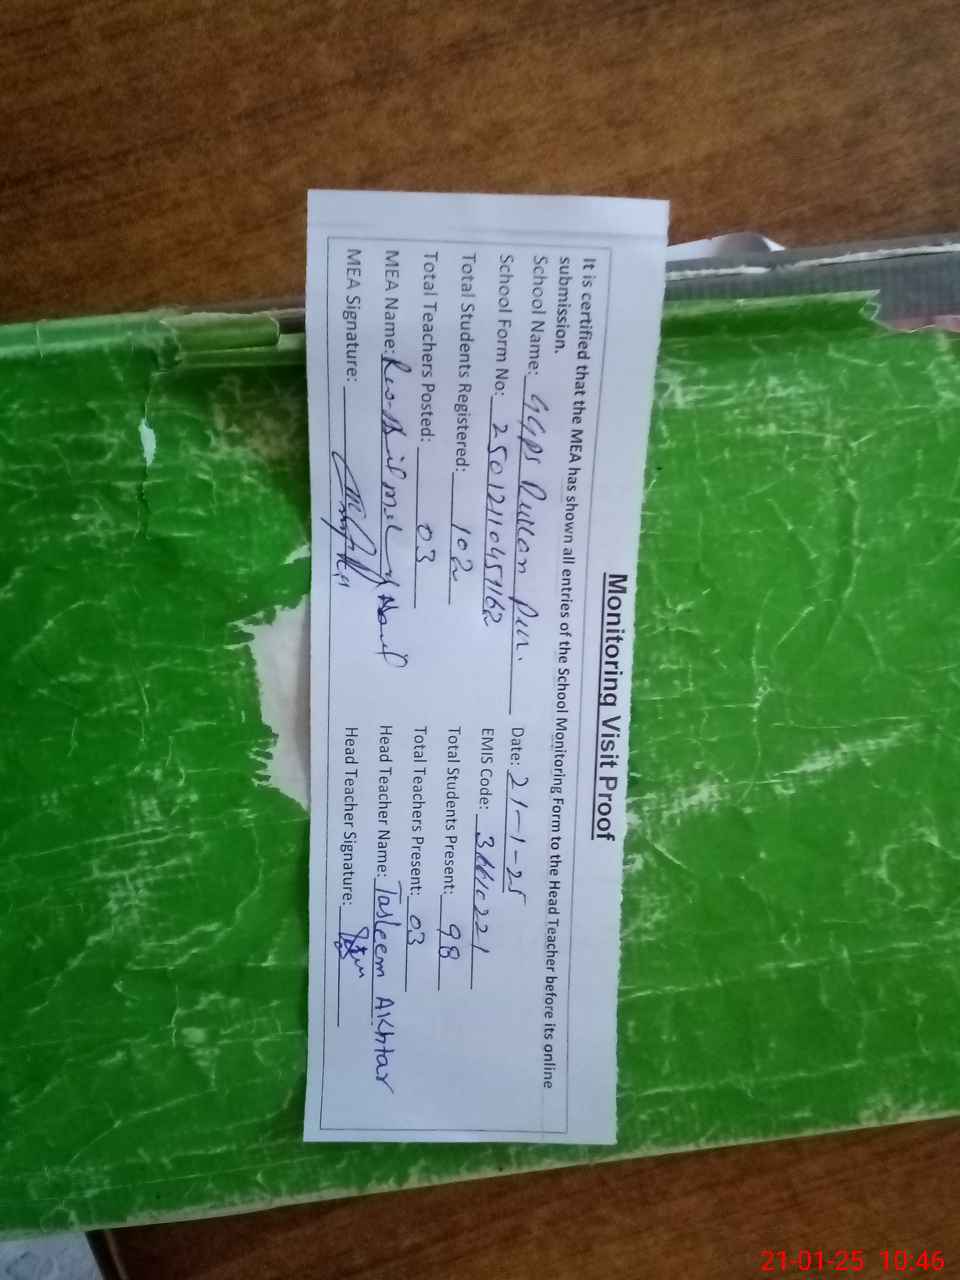 Monitoring Visit Proof
It is certified that the MEA has shown all entries of the School Monitoring Form to the Head Teacher before its online
submission.
School Name: GGPS Pullan Din. Date: 21-1-25
School Form No: 2501211045162 EMIS Code: 36610221
Total Students Registered: 102 Total Students Present: 98
Total Teachers Posted: 03 Total Teachers Present: 03
MEA Name: Head Teacher Name: Tasleem Akhtar
MEA Signature: Head Teacher Signature:
21-01-25 10:46